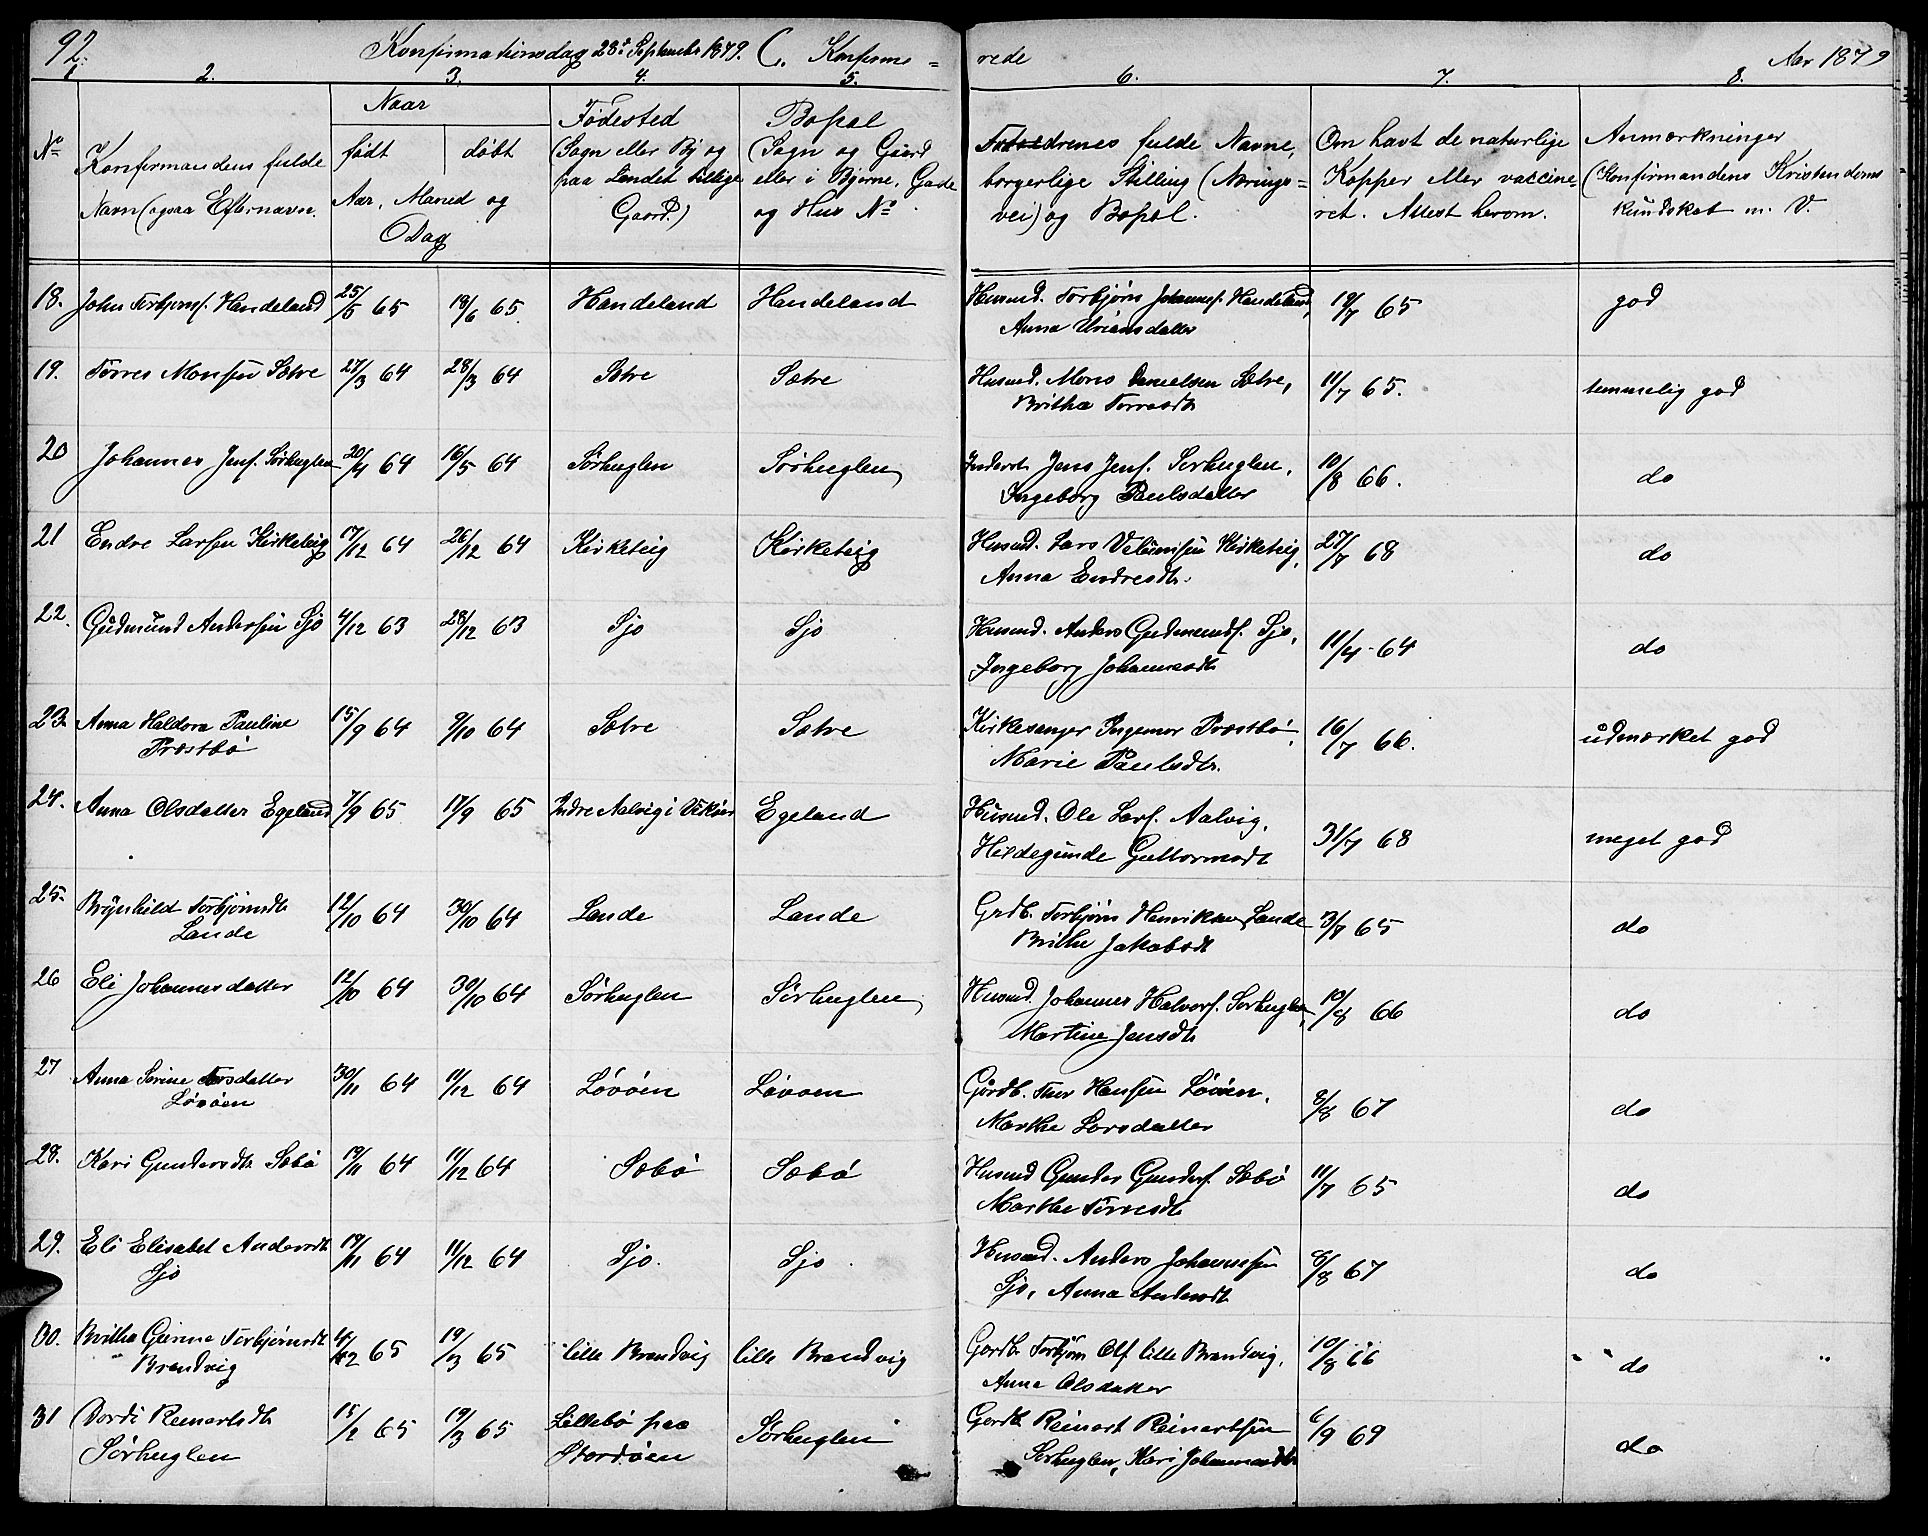 92. Konfirmationsdag 28de September 1879. C. Konfirme = rede Aar 1879
1 2. 3. 4. 5. 6. 7. 8.
No
Konfirmandens fulde
Navn (ogsaa Efternavn.
Naar
født døbt
Aar, Maned og
Dag
Fødested
(Sogn eller By og
paa Landet tillige
Gaard.)
Bopæl
(Sogn og Gaard
eller i Byerne, Gade
og Hus No
Forældrenes fulde Navne,
borgerlige Stilling (Nærings=
vei) og Bopæl.
Om havt de naturlige
Kopper eller vaccine=
ret. Attest herom.
Anmærkninger
(Konfirmandens Kristendoms
kundskab m. V.
18. John Torbjørns. Handeland 25/5 65 18/6 65. Handeland Handeland Husmd. Torbjørn Johannes. Handeland, 19/7 65 god
Anna Uriansdatter
19. Torres Monsen Sætre 27/3 64 28/3 64 Sætre Sætre Husmd. Mons Danielsen Sætre, 11/7 65. temmelig god
Britha Torresdtr
20 Johannes Jens. Sørhuglen 20/4 64 16/5 64 Sørhuglen Sørhuglen Inderst Jens Jens. Sørhuglen, 10/8 66. do
Ingeborg Paulsdatter
21 Endre Larsen Kirketeig 17/12 64 26/12 64 Kirketeig Kirketeig Husmd. Lars Villumsen Kirketeig, 27/7 68 do
Anna Endresdtr.
22. Gudmund Andersen Sjo 4/12 63 28/12 63 Sjo Sjo Husmd. Anders Gudmunds. Sjo, 11/4 64 do
Ingeborg Johannesdtr
23. Anna Haldora Pauline 15/9 64 9/10 64 Sætre Sætre Kirkesanger Ingemor Præstbø, 16/7 66. udmærket god
Præstbø Marie Paulsdtr.
24. Anna Olsdatter Egeland 7/9 65 17/9 65 Indre Aalvig i Vikøer Egeland Husmd. Ole Lars. Aalvig, 31/7 68 meget god
Hildegunde Guttormsdtr
25. Brynhild Torbjørnsdtr 12/10 64 30/10 64 Lande Lande Grdb. Torbjørn Henriksen Lande 3/7 65 do
Lande Brithe Jakobsdtr
26 Eli Johannesdatter 12/10 64 30/10 64 Sørhuglen Sørhuglen Husmd. Johannes Halvors. Sørhuglen, 10/8 66 do
Martine Jensdtr
27 Anna Serine Torsdatter 30/11 64 11/12 64 Løvøen Løvøen Gårdb. Thor Hansen Løvøen, 8/8 67 do
Løvøen Marthe Larsdatter
28. Kari Gundersdtr Sæbø 19/11 64 11/12 64 Sæbø Sæbø Husmd Gunder Gunders. Sæbø 11/7 65 do
Marthe Torresdtr
29. Eli Elisabet Andersdtr 19/11 64 11/12 64 Sjo. Sjo Husmd. Anders Johannesen 8/8 67 do
Sjo Sjo, Anna Andersdtr
30. Britha Gurine Torbjørnsdtr 4/2 65 19/3 65 lille Brandvig lille Brandvig Gårdb. Torbjørn Ols. lille Brandvig, 10/8 66 do
Brandvig Anna Olsdatter
31 Dordi Reinertsdtr 15/2 65 19/3 65 Lillebø paa Sørhuglen Gårdb. Reinert Reinertsen 6/9 69 do
Sørhuglen Stordøen Sørhuglen, Kari Johannesdtr